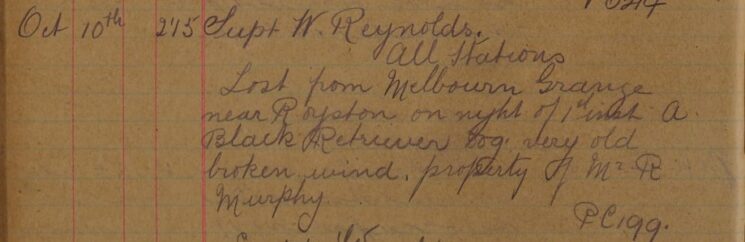 Oct 10th 2.15 Supt W. Reynolds.
All Stations
Lost from Melbourn Grange
near Royston on night of 1st inst A
Black Retriever Dog very old
broken wind, property of Mr R
Murphy
PC199.